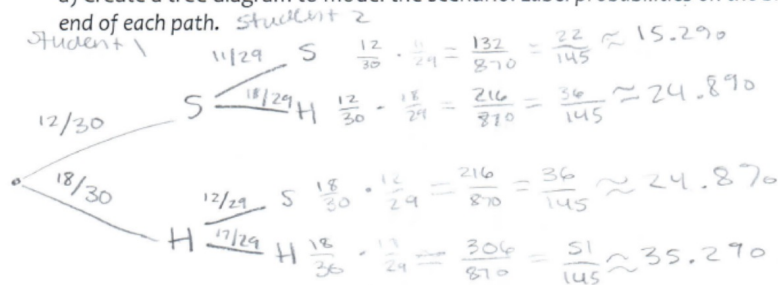 end of each path. Student 2
Student 1
11/29 S 12/30 · 11/29 = 132/870 = 22/145 ≈ 15.2%
12/30 S 18/29 H 12/30 · 18/29 = 216/870 = 36/145 ≈ 24.8%
18/30 12/29 S 18/30 · 12/29 = 216/870 = 36/145 ≈ 24.8%
H 17/29 H 18/30 · 17/29 = 306/870 = 51/145 ≈ 35.2%